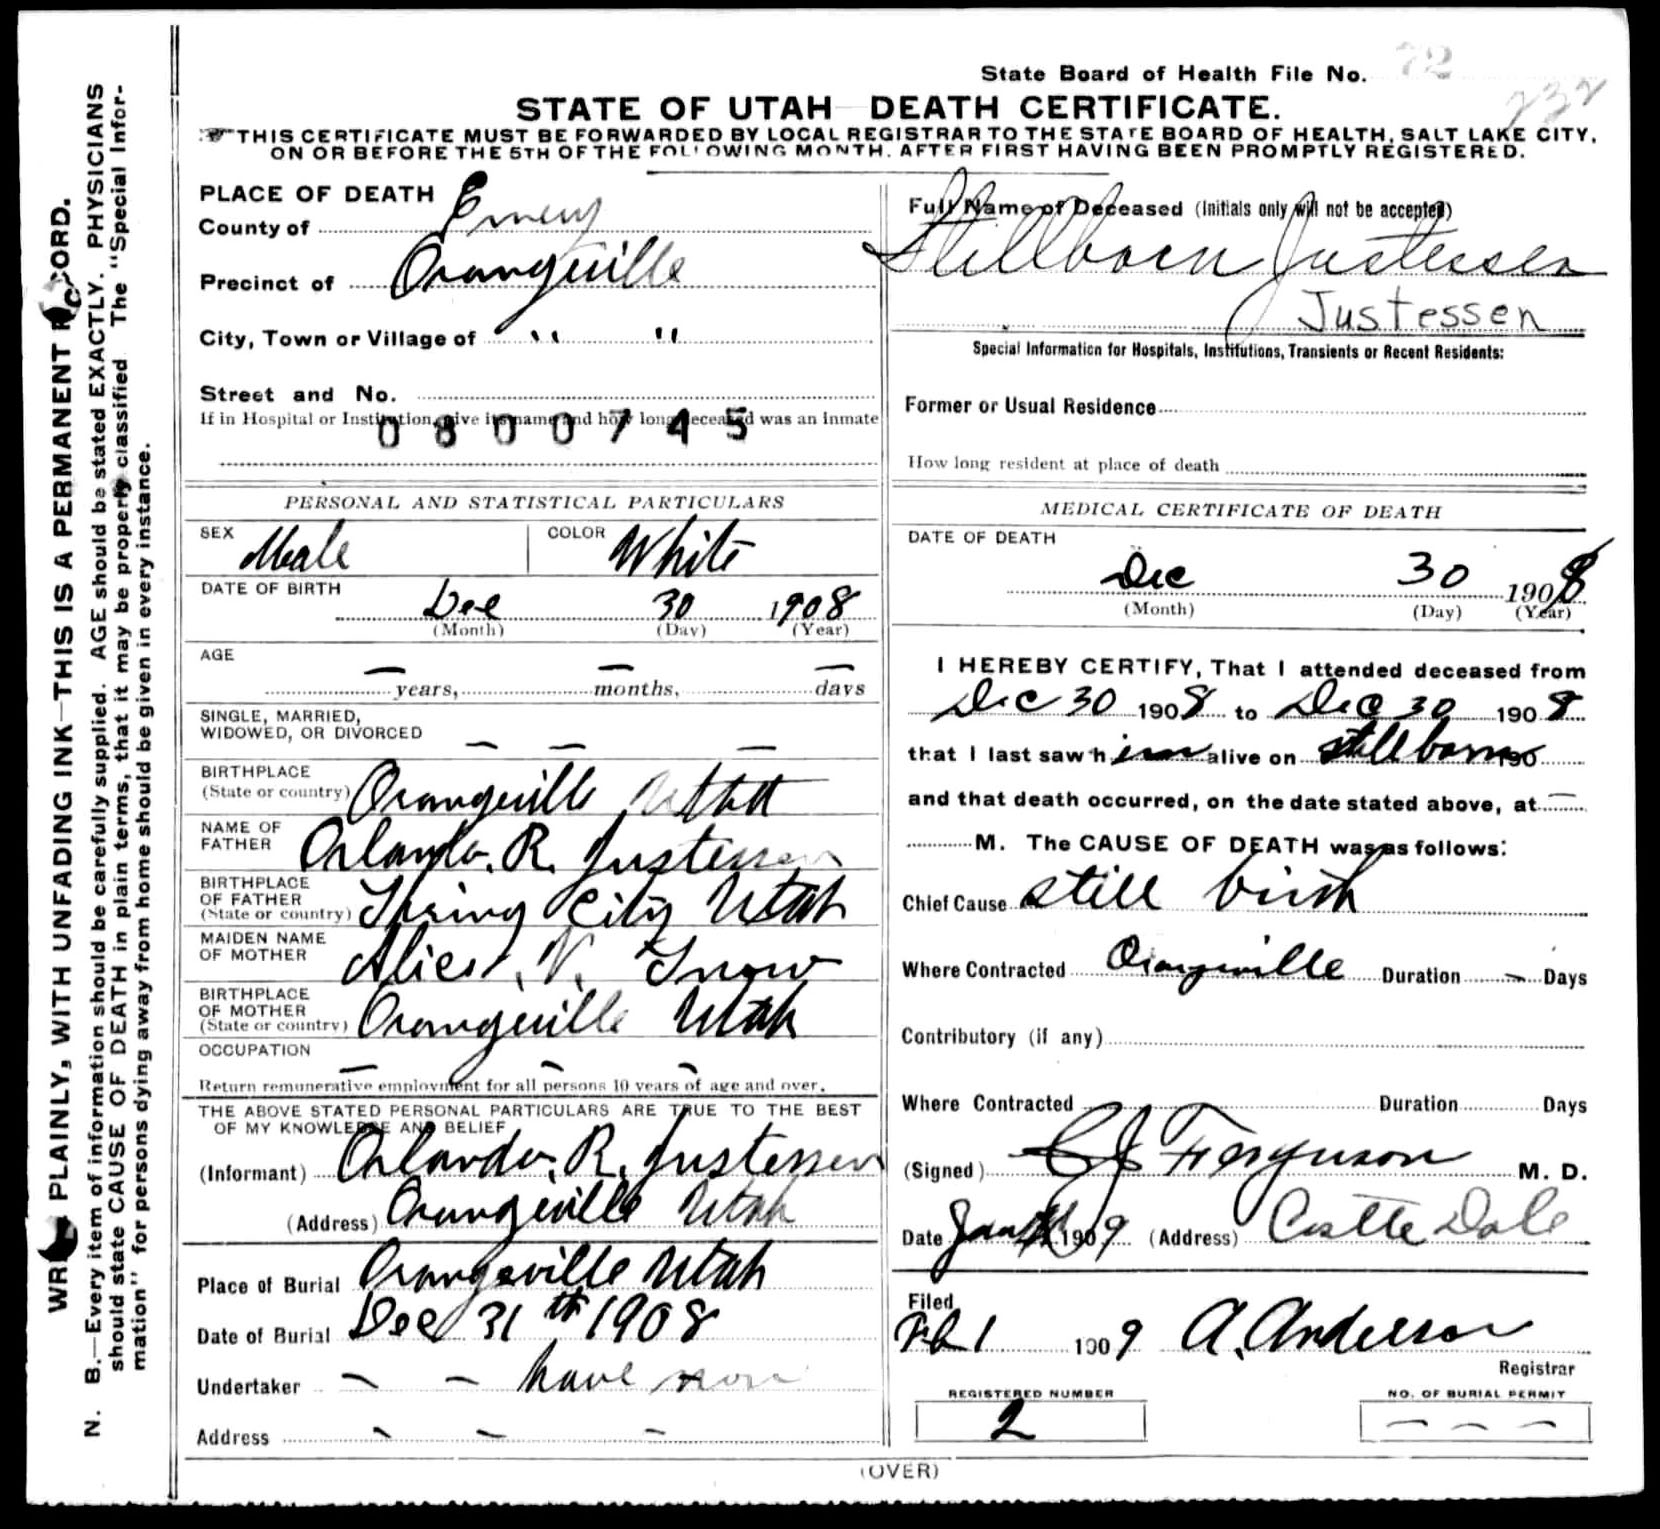 State Board of Health File No. 72
232
STATE OF UTAH—DEATH CERTIFICATE.
THIS CERTIFICATE MUST BE FORWARDED BY LOCAL REGISTRAR TO THE STATE BOARD OF HEALTH, SALT LAKE CITY,
ON OR BEFORE THE 5TH OF THE FOLLOWING MONTH, AFTER FIRST HAVING BEEN PROMPTLY REGISTERED.
WRITE PLAINLY, WITH UNFADING INK—THIS IS A PERMANENT RECORD.
N. B.—Every item of information should be carefully supplied. AGE should be stated EXACTLY. PHYSICIANS
should state CAUSE OF DEATH in plain terms, that it may be properly classified The "Special Infor-
mation" for persons dying away from home should be given in every instance.
PLACE OF DEATH
County of Emery
Precinct of Orangeville
City, Town or Village of " "
Street and No.
If in Hospital or Institution, give its name and how long deceased was an inmate
0800745
PERSONAL AND STATISTICAL PARTICULARS
SEX Male COLOR White
DATE OF BIRTH
Dec 30 1908
(Month) (Day) (Year)
AGE
— years, — months, — days
SINGLE, MARRIED,
WIDOWED, OR DIVORCED — — —
BIRTHPLACE
(State or country) Orangeville Utah
NAME OF
FATHER Orlando. R. Justessen
BIRTHPLACE
OF FATHER
(State or country) Spring City Utah
MAIDEN NAME
OF MOTHER Alice. V. Snow
BIRTHPLACE
OF MOTHER
(State or country) Orangeville Utah
OCCUPATION
— — —
Return remunerative employment for all persons 10 years of age and over.
THE ABOVE STATED PERSONAL PARTICULARS ARE TRUE TO THE BEST
OF MY KNOWLEDGE AND BELIEF
(Informant) Orlando. R. Justessen
(Address) Orangeville Utah
Place of Burial Orangeville Utah
Date of Burial Dec 31th 1908
Undertaker — — have non
Address — — —
Full Name of Deceased (Initials only will not be accepted)
Stillborn Justessen
Justessen
Special Information for Hospitals, Institutions, Transients or Recent Residents:
Former or Usual Residence
How long resident at place of death
MEDICAL CERTIFICATE OF DEATH
DATE OF DEATH
Dec 30 1908
(Month) (Day) (Year)
I HEREBY CERTIFY, That I attended deceased from
Dec 30 1908 to Dec 30 1908
that I last saw him alive on stillborn 190
and that death occurred, on the date stated above, at —
M. The CAUSE OF DEATH was as follows:
Chief Cause still birth
Where Contracted Orangeville Duration — Days
Contributory (if any)
Where Contracted Duration Days
(Signed) C J Ferguson M. D.
Date Jan 1909 (Address) Castle Dale
Filed
Feb 1 1909 A. Anderson
Registrar
REGISTERED NUMBER
2
NO. OF BURIAL PERMIT
— — —
(OVER)